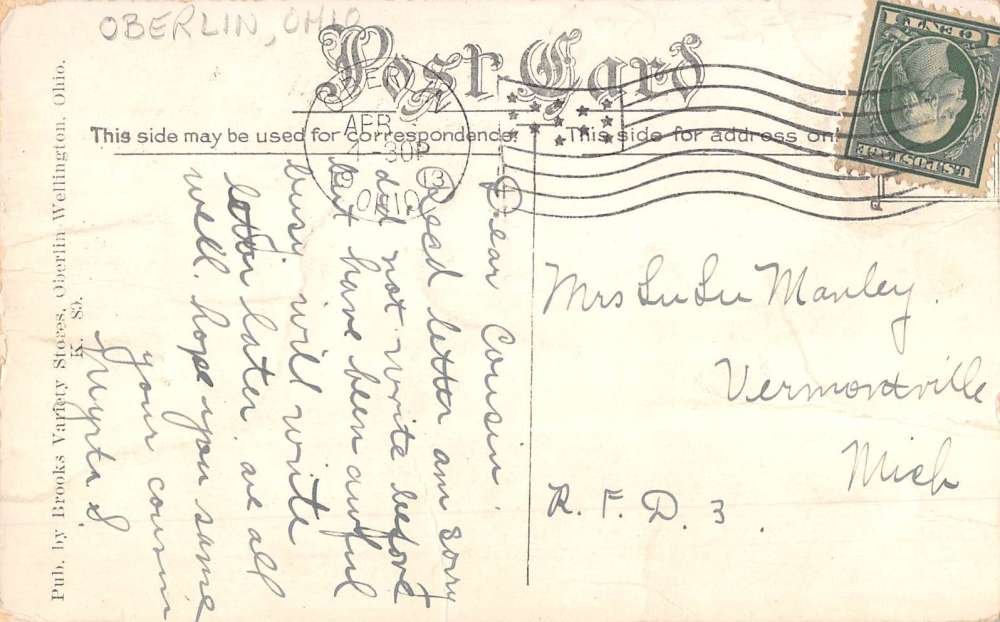 OBERLIN, OHIO
Post Card
This side may be used for correspondence.
This side for address on
1 CENT 1
U.S. POSTAGE
OBERLIN
APR
-30P
OHIO
Dear Cousin
Recd letter am sorry
did not write before
but have been awful
busy will write
letter later. are all
well. hope you same
your cousin
S.
Mrs LuLu Manley.
Vermontville
Mich
R. F. D. 3.
Pub. by Brooks Variety Stores, Oberlin Wellington, Ohio.
K. S.